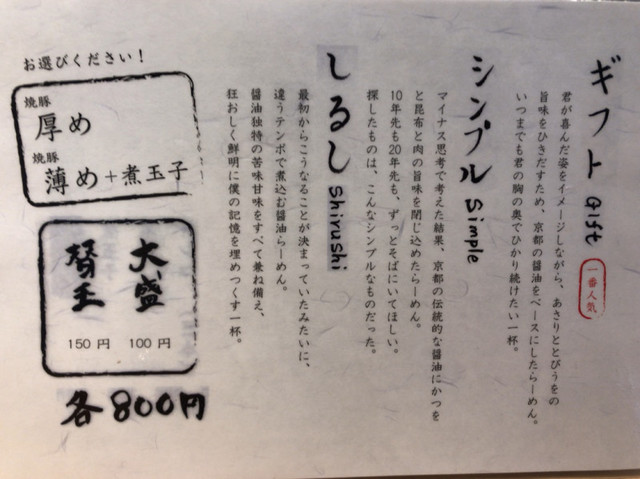 ギフト Gift
一番人気
君が喜んだ姿をイメージしながら、あさりととびうをの
旨味をひきだすため、京都の醤油をベースにしたらーめん。
いつまでも君の胸の奥でひかり続けたい一杯。
シンプル Simple
マイナス思考で考えた結果、京都の伝統的な醤油にかつを
と昆布と肉の旨味を閉じ込めたらーめん。
10年先も20年先も、ずっとそばにいてほしい。
探したものは、こんなシンプルなものだった。
しるし Shirushi
最初からこうなることが決まっていたみたいに、
違うテンポで煮込む醤油らーめん。
醤油独特の苦味甘味をすべて兼ね備え、
狂おしく鮮明に僕の記憶を埋めつくす一杯。
お選びください！
焼豚
厚め
焼豚
薄め+煮玉子
大盛
100円
替玉
150円
各800円